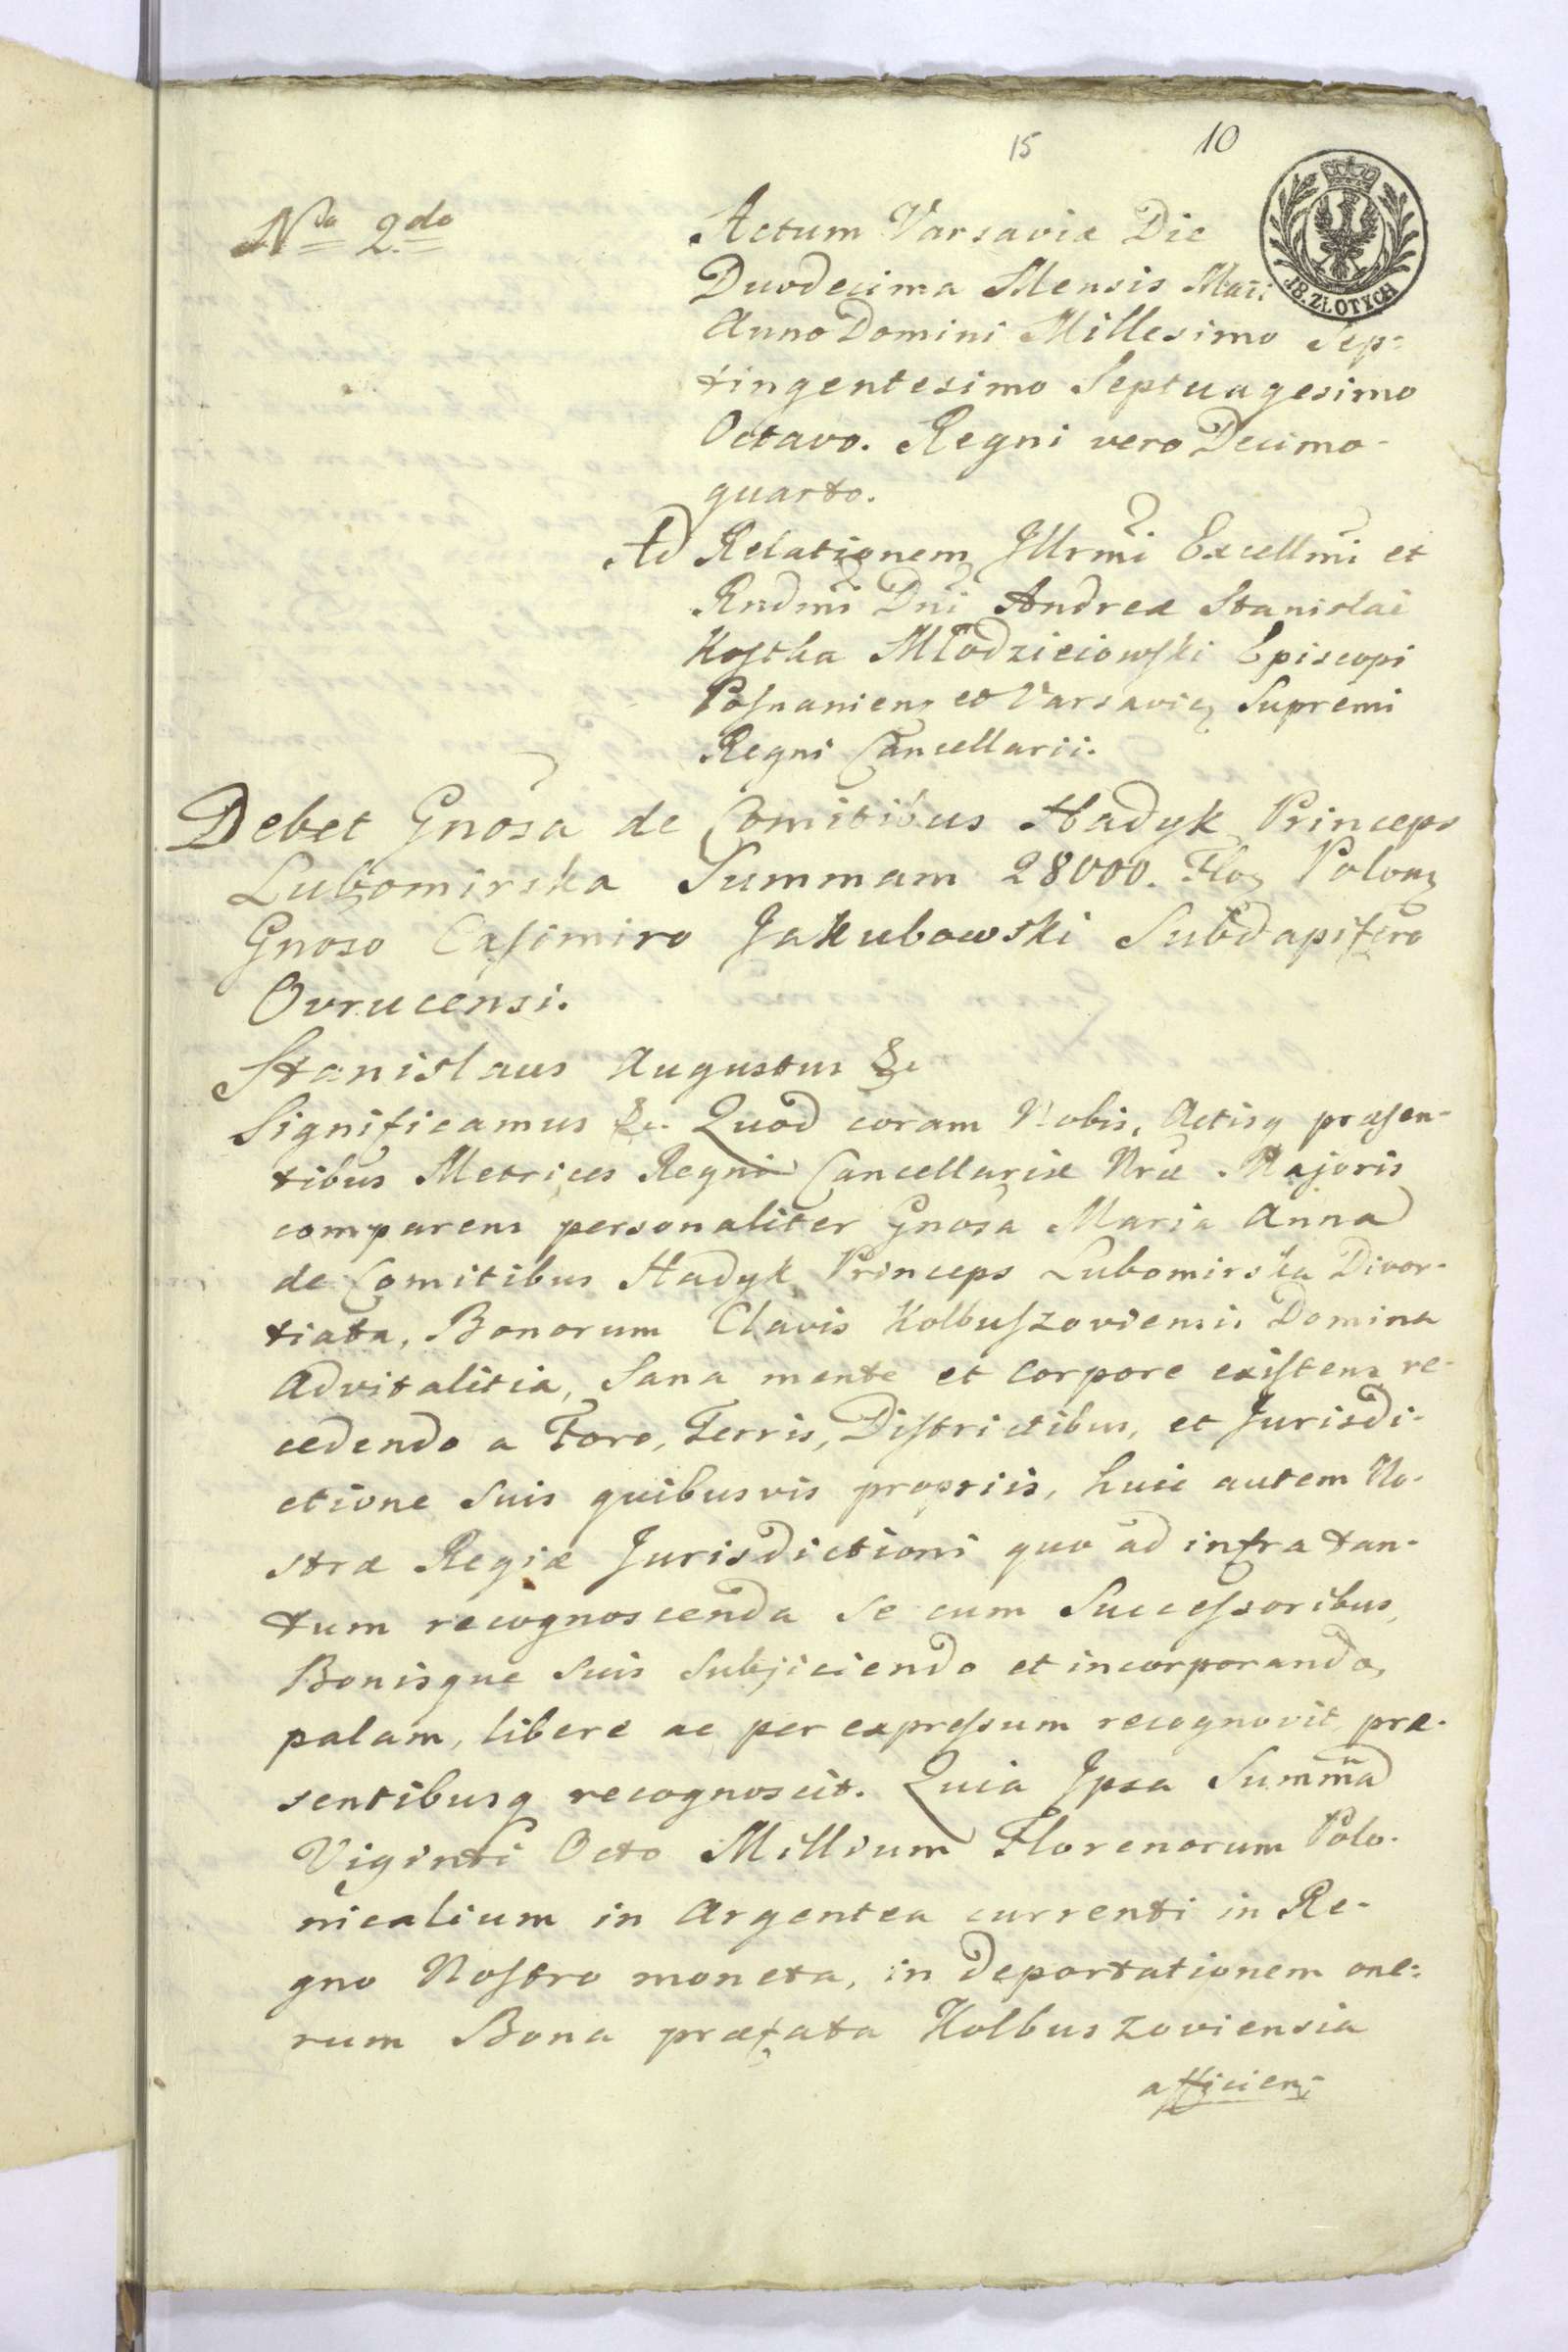 15 10
18. ZŁOTYCH
No 2do
Actum Varsaviæ Die
Duodecima Mensis Maii
Anno Domini Millesimo Sep=
tingentesimo Septuagesimo
Octavo. Regni vero Decimo-
quarto.
Ad Relationem Jllrmi Excellmi et
Rndmi Dni Andreæ Stanislai
Kostka Młodzieiowski Episcopi
Posnanien et Varsavien Supremi
Regni Cancellarii.
Debet Gnosa de Comitibus Hadyk Princeps
Lubomirska Summam 28000. Flo Polon
Gnoso Casimiro Jakubowski Subdapifero
Ovrucensi.
Stanislaus Augustus &c
Significamus &c. Quod coram Nobis, Actisq præsen-
tibus Metrices Regni Cancellariæ Nræ Majoris
comparens personaliter Gnosa Maria Anna
de Comitibus Hadyk Princeps Lubomirska Divor-
tiata, Bonorum Clavis Kolbuszoviensis Domina
Advitalitia, Sana mente et Corpore existens re-
cedendo a Foro, Terris, Districtibus, et Jurisdi-
ctione Suis quibusvis propriis, huic autem No-
stræ Regiæ Jurisdictioni quo ad infra tan-
tum recognoscenda se cum Successoribus,
Bonisque Suis Subjiciendo et incorporando,
palam, libere ac per expressum recognovit, præ-
sentibusq recognoscit. Quia Jpsa Summa
Viginti Octo Millium Florenorum Polo-
nicalium in Argentea currenti in Re-
gno Nostro moneta, in deportationem one=
rum Bona præfata Kolbuszoviensia
afficien-